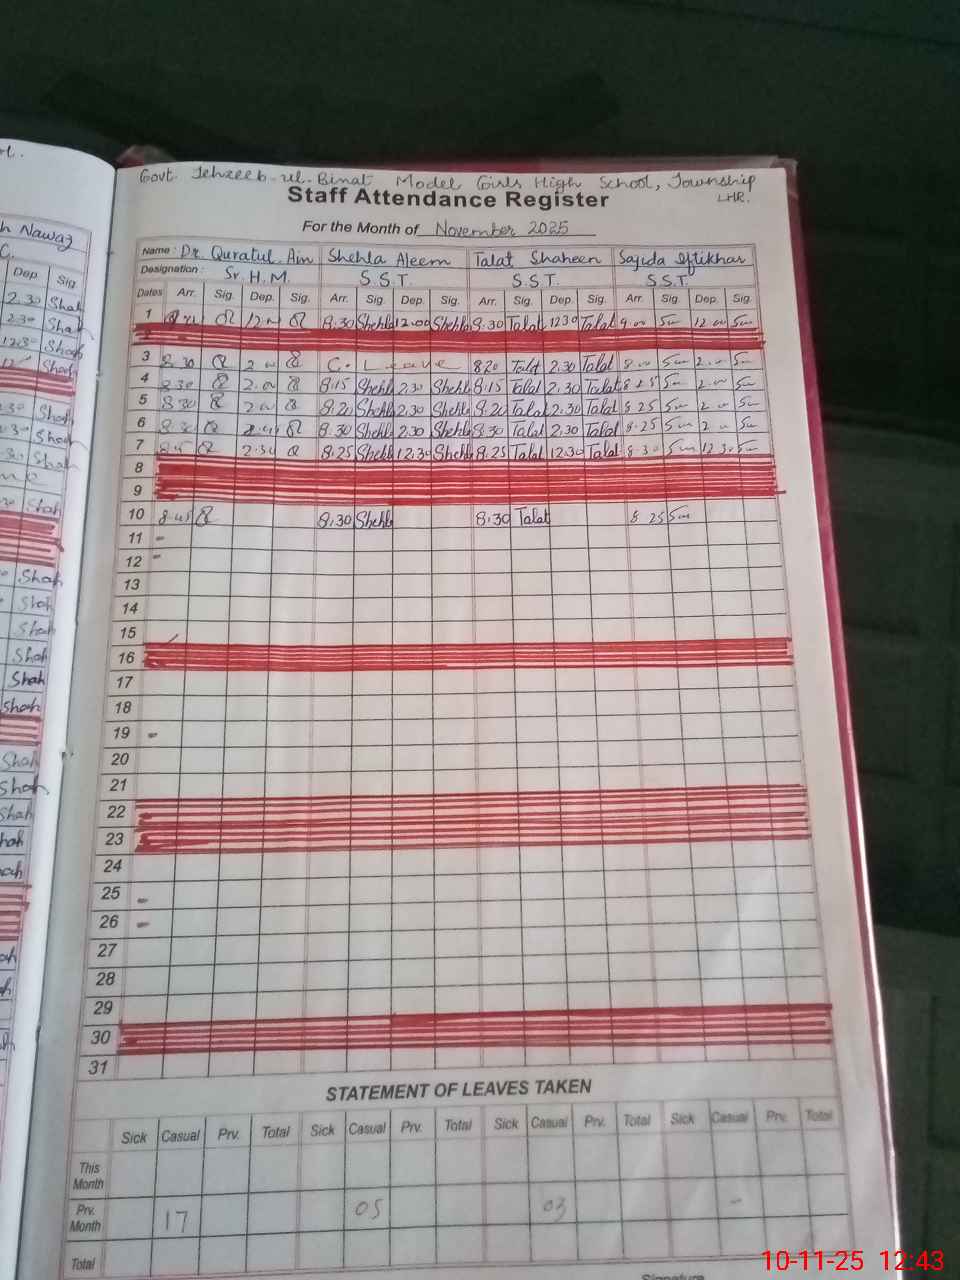 h Nawaz
C.
Dep. Sig.
2.30 Shah
2.30 Sha
12.30 Shah
Govt. Tehzeeb-ul-Binat Model Girls High School, Township
LHR.
Staff Attendance Register
For the Month of November 2025
Name : Dr. Quratul Ain Shehla Aleem Talat Shaheen Sajida Iftikhar
Designation : Sr. H.M. S.S.T. S.S.T. S.S.T.
Dates Arr. Sig. Dep. Sig. Arr. Sig. Dep. Sig. Arr. Sig. Dep. Sig. Arr. Sig. Dep. Sig.
1 8.30 Shehla 12.00 Shehla 8.30 Talat 1230 Talat 9.00 12.00
3 8.30 2.00 C. Leave 820 Talat 2.30 Talat 8.00 2.00
4 8.30 2.00 8.15 Shehla 2.30 Shehla 8.15 Talat 2.30 Talat 8.25 2.00
5 8.30 2.00 8.20 Shehla 2.30 Shehla 8.20 Talat 2.30 Talat 8.25 2.00
6 8.30 8.30 Shehla 2.30 Shehla 8.30 Talat 2.30 Talat 8.25 2.00
7 8.25 Shehla 12.30 Shehla 8.25 Talat 12.30 Talat 8.30 12.30
8
9
10 8.45 8.30 Shehla 8.30 Talat 8.25
11
12
13
14
15
16
17
18
19
20
21
22
23
24
25
26
27
28
29
30
31
STATEMENT OF LEAVES TAKEN
Sick Casual Prv. Total Sick Casual Prv. Total Sick Casual Prv. Total Sick Casual Prv. Total
This Month
Prv. Month 17 05 03 -
Total
Signature
10-11-25 12:43